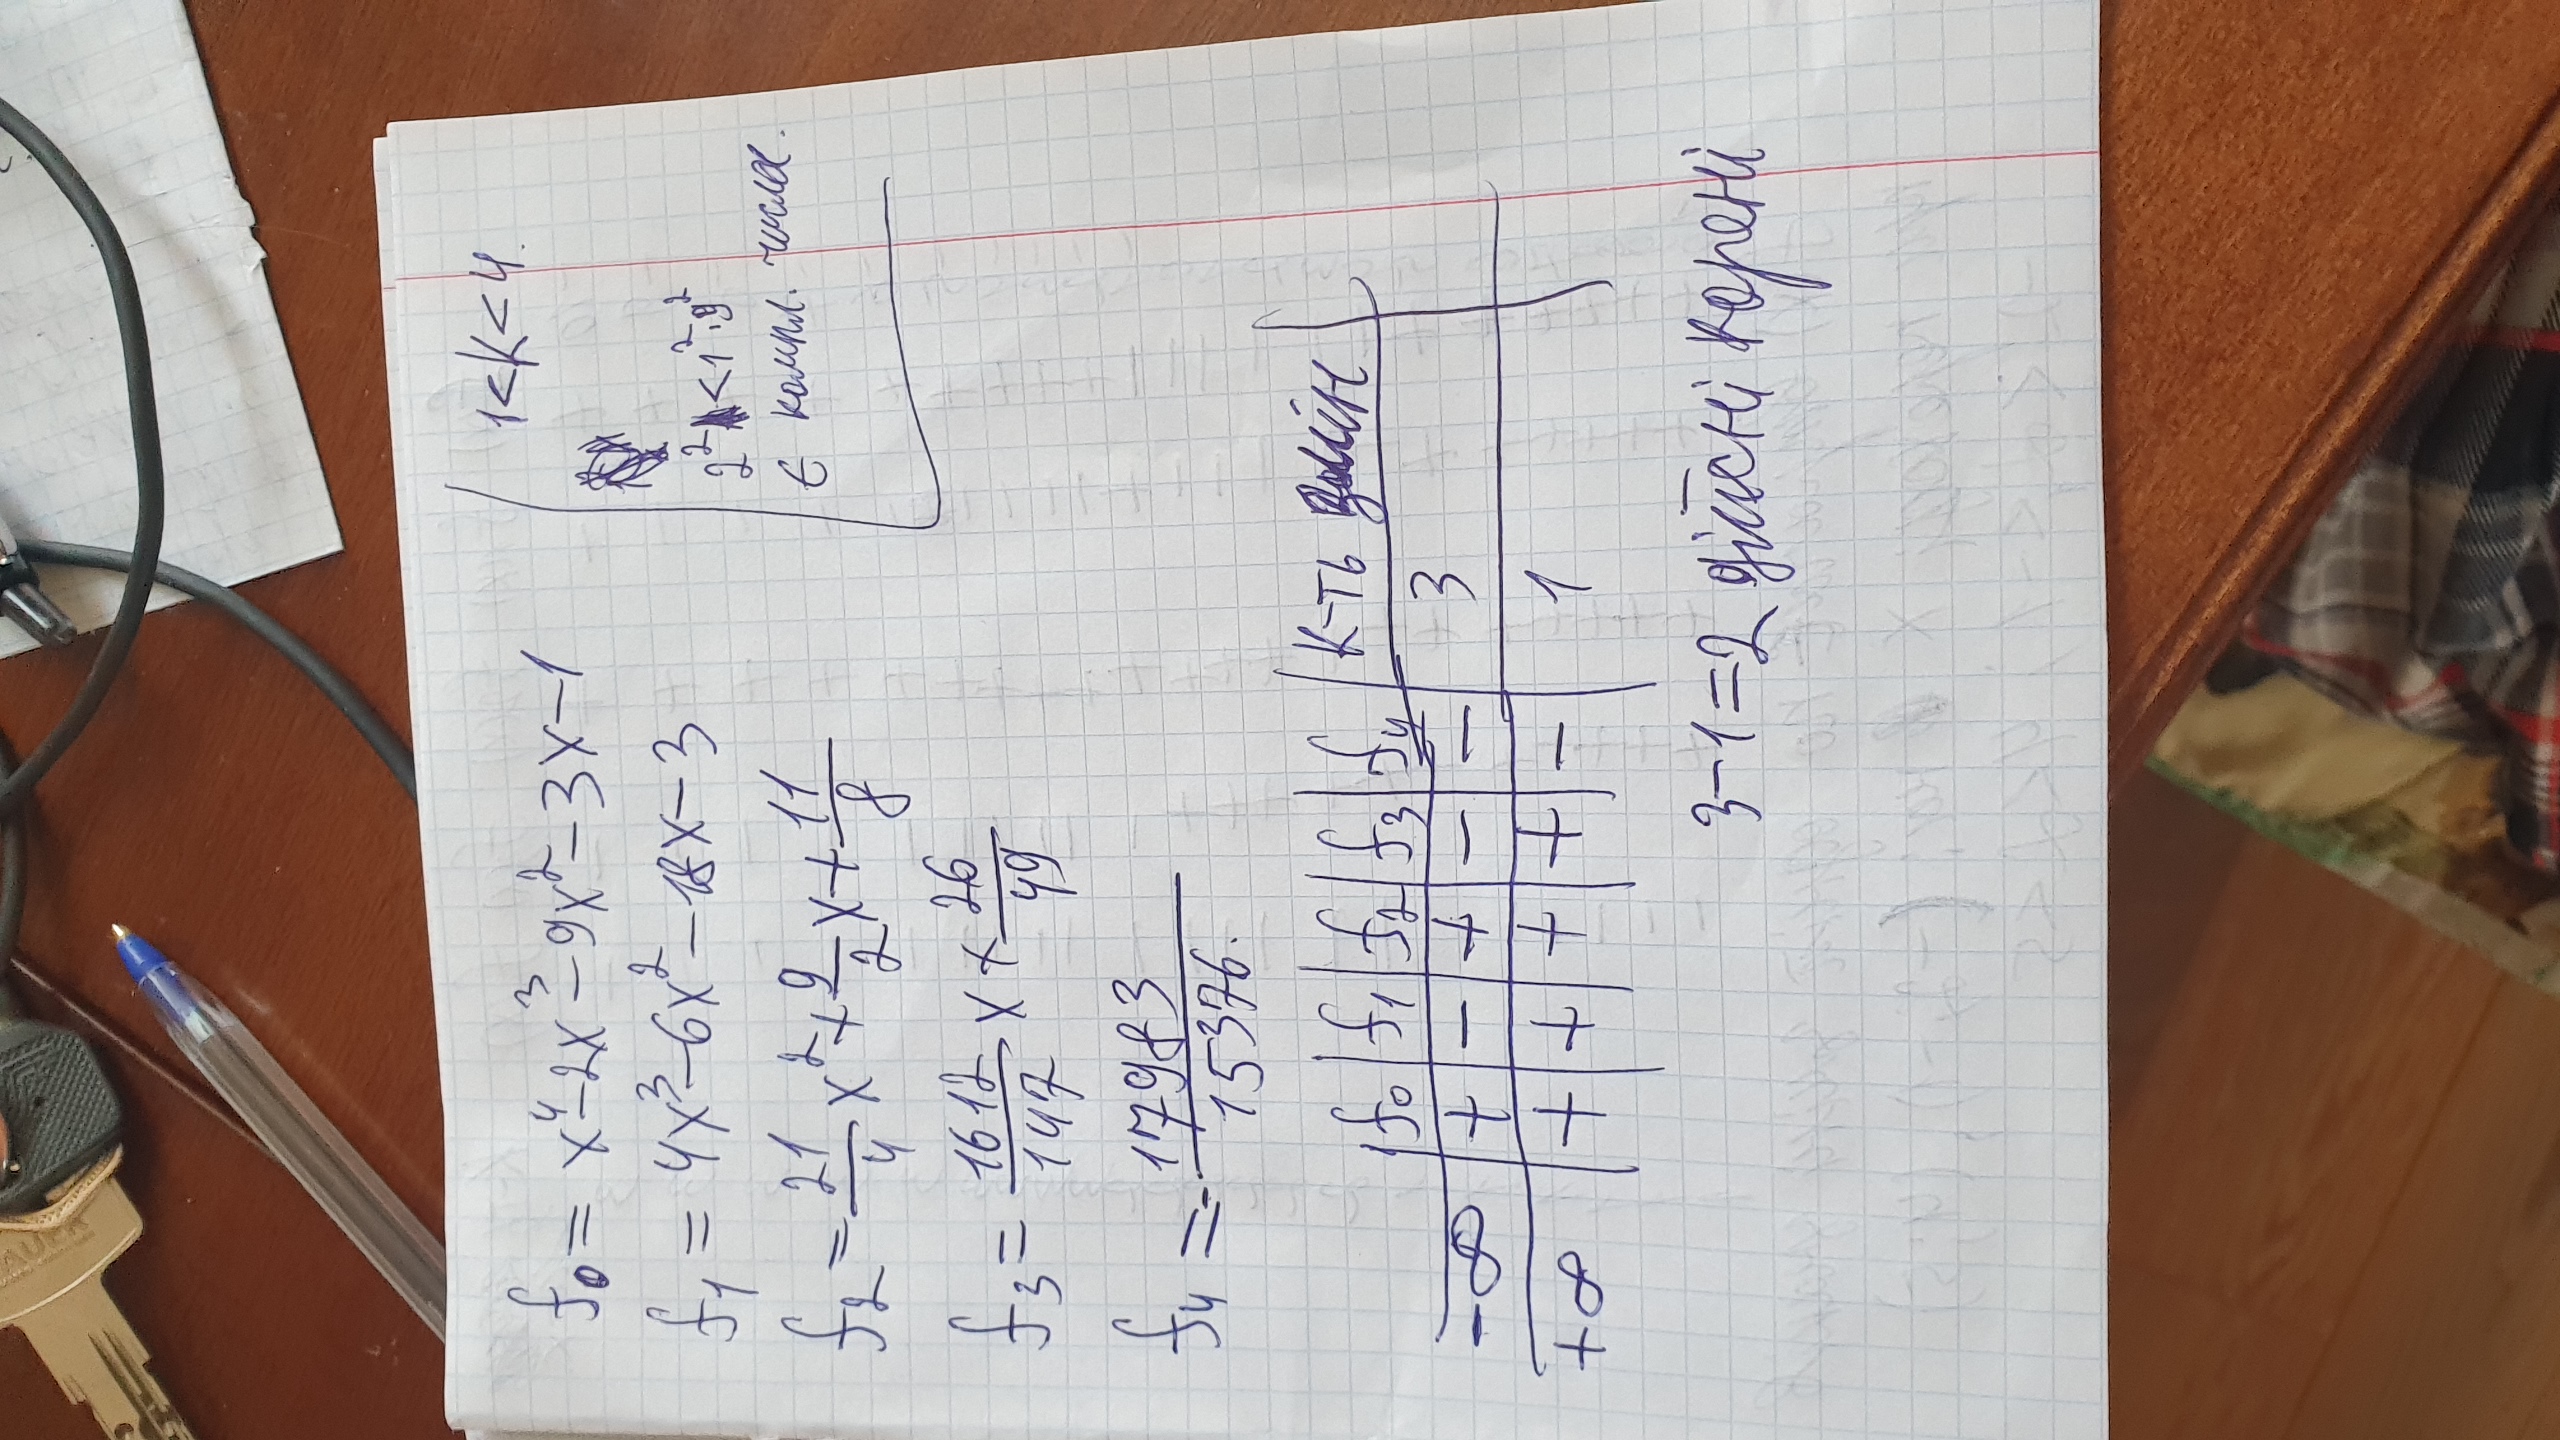 f₀ = x⁴-2x³-9x²-3x-1
f₁ = 4x³-6x²-18x-3
f₂ = 21/4 x² + 9/2 x + 11/8
f₃ = 1612/147 x + 26/49
f₄ = - 17983/15376.
1<K<4.
2² < 1²·9²
є компл. числа.
f₀ f₁ f₂ f₃ f₄ К-ть змін
-∞ + - + - - 3
+∞ + + + + - 1
3-1=2 дійсні корені